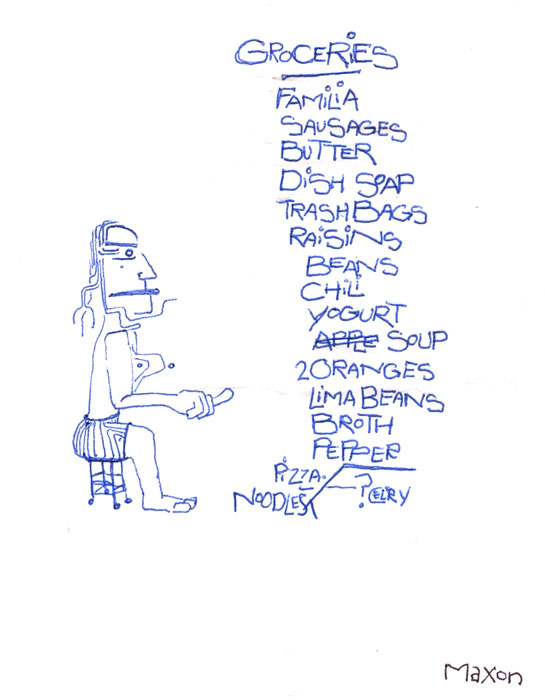 GROCERIES
FAMILIA
SAUSAGES
BUTTER
DISH SOAP
TRASH BAGS
RAISINS
BEANS
CHILI
YOGURT
APPLE SOUP
2 ORANGES
LIMA BEANS
BROTH
PEPPER
PIZZA
NOODLES
? CELRY
Maxon